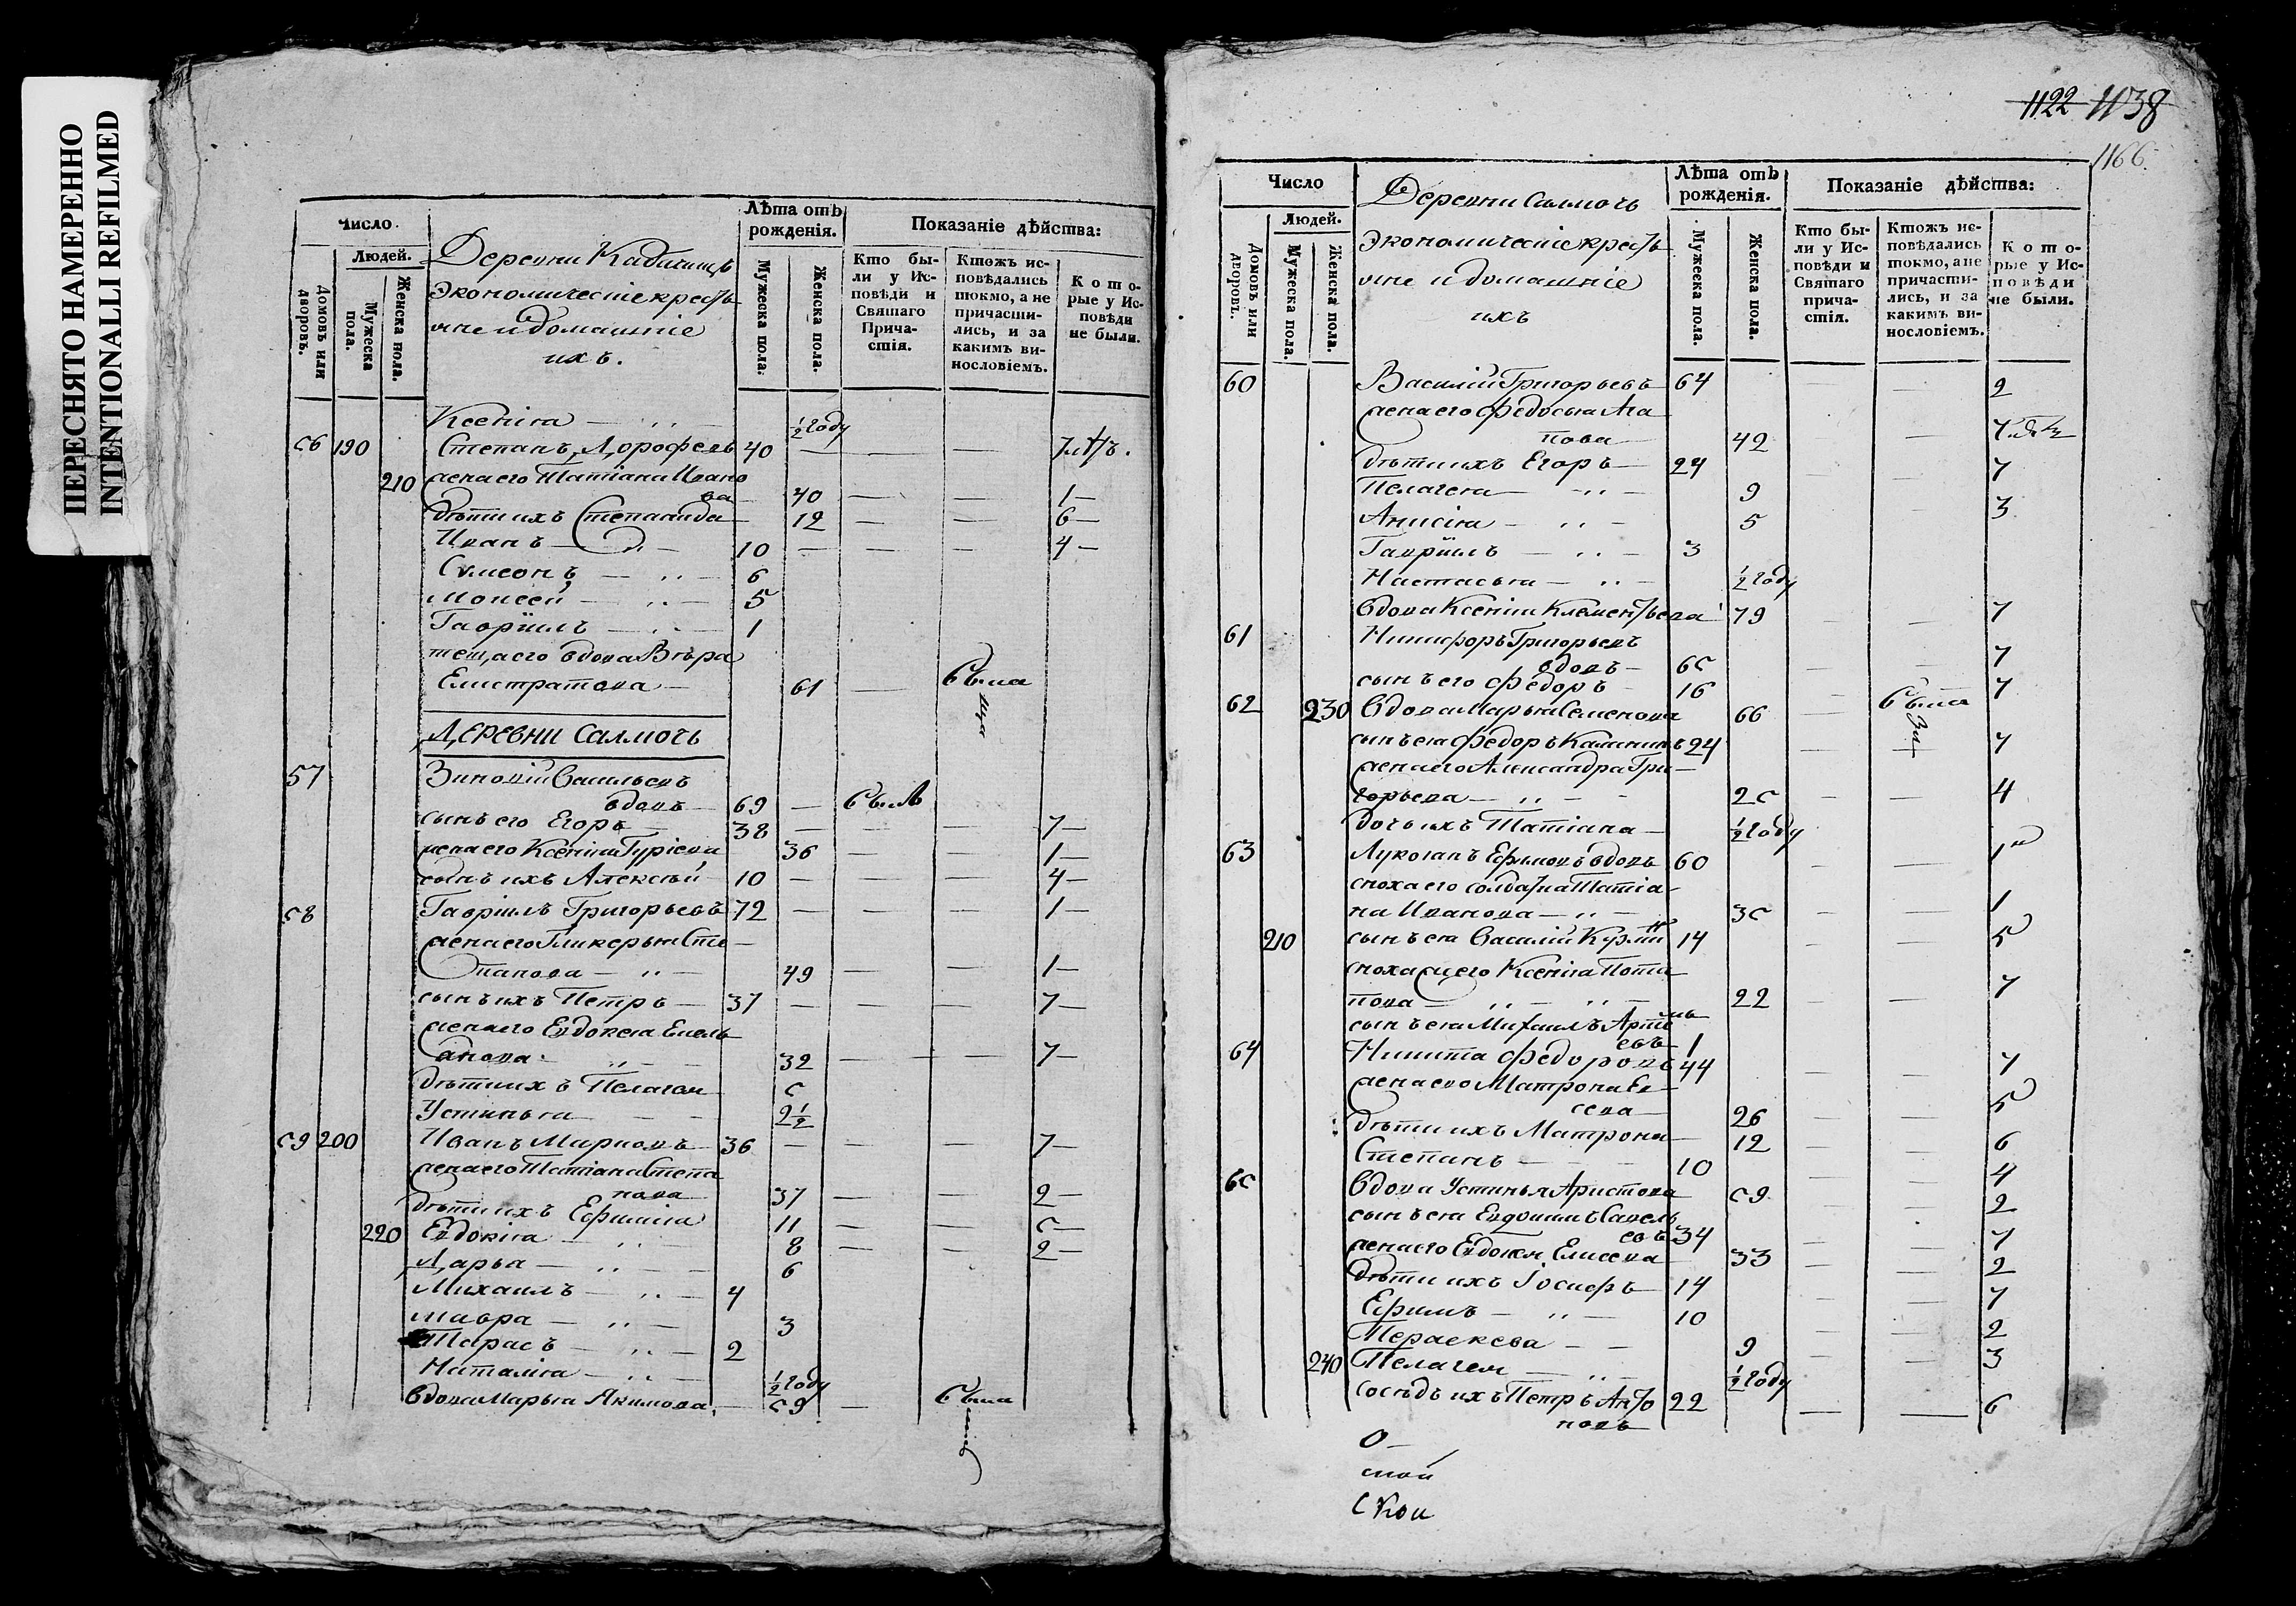 ПЕРЕСНЯТО НАМЕРЕННО
INTENTIONALLI REFILMED
Число
Людей.
Домовъ или дворовъ.
Мужеска пола.
Женска пола.
Деревни
Экономическіе крестья
не и домашніе
ихъ.
Лѣта отъ рожденія.
Мужеска пола.
Женска пола.
Показаніе дѣйства:
Кто бы-
ли у Ис-
повѣди и
Святаго
Прича-
стія.
Ктожъ ис-
повѣдались
токмо, а не
причасти-
лись, и за
какимъ ви-
нословіемъ.
К о т о-
рые у Ис-
повѣди
не были.
Ксенія ½ году
56 190 Степанъ Дорофеевъ 40 7 лѣтъ.
210 жена его Татіана Ивано
ва 40 1
дѣти ихъ Степанида 12 6
Иванъ 10 4
Симеонъ 6
Моисей 5
Гавріилъ 1
теща его вдова Вѣра
Елистратова 61 была
Деревни Салмочь
57 Зиновій Васильевъ
вдовъ 69 былъ
сынъ его Егоръ 38 7
жена его Ксенія Гуріева 36 1
сынъ ихъ Алексѣй 10 4
58 Гавріилъ Григорьевъ 72 1
жена его Гликерья Сте
панова 49 1
сынъ ихъ Петръ 37 7
жена его Евдокея Емель
анова 32 7
дѣти ихъ Пелагея 5
Устинья 2½
59 200 Иванъ Марковъ 36 7
жена его Татіана Степа
нова 37 2
дѣти ихъ Ефимія 11 5
220 Евдокія 8 2
Дарья 6
Михаилъ 4
Мавра 3
Тарасъ 2
Наталія ½ году
вдова Марья Якимова 59 была
1122 1138
1166
Число
Людей.
Домовъ или дворовъ.
Мужеска пола.
Женска пола.
Деревни Салмочь
Экономическіе кресть
яне и домашніе
ихъ
Лѣта отъ рожденія.
Мужеска пола.
Женска пола.
Показаніе дѣйства:
Кто бы-
ли у Ис-
повѣди и
Святаго
прича-
стія.
Ктожъ ис-
повѣдались
токмо, а не
причасти-
лись, и за
какимъ ви-
нословіемъ.
К о т о-
рые у Ис-
повѣди
не были.
60 Василій Григорьевъ 64 2
жена его Федосья Ага
пова 42 7 лѣтъ
дѣти ихъ Егоръ 24 7
Пелагея 9 3
Анисія 5
Гавріилъ 3
Настасья ½ году
вдова Ксенія Клементьева 79 7
61 Никифоръ Григорьевъ
вдовъ 65 7
сынъ его Федоръ 16 7
62 230 вдова Марья Семенова 66 была
сынъ ея Федоръ Калининъ 24 7
жена его Александра Гри
горьева 25 4
дочь ихъ Татіана ½ году
63 Лукоянъ Ефимовъ вдовъ 60 1
сноха его солдатка Татіа
на Иванова 35 1
210 сынъ ея Василій 14 5
Ксенія Пота
пова 22 7
сынъ ея Михаилъ Арте
евъ 1
64 Никита Федоровъ 44 7
жена его Матрона Ев
сева 26 5
дѣти ихъ Матрона 12 6
Степанъ 10 4
65 вдова Устинья Аристова 59 2
сынъ ея Евдокимъ Савель
евъ 34 7
жена его Евдокея Елисева 33 2
дѣти ихъ Іосифъ 14 7
Ефимъ 10 2
Пераскева 9 3
240 Пелагея ½ году
сосѣдъ ихъ Петръ Анто
новъ 22 6